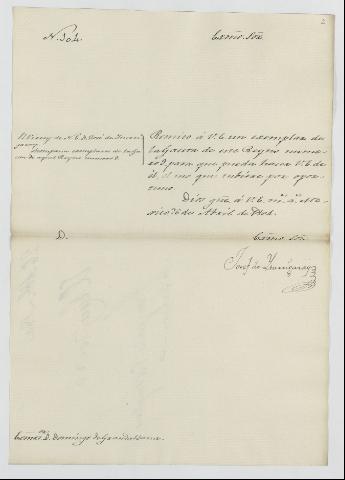 2
N. 104.
Exmo. Sor.
El Virrey de N. E. D. José de Iturri
garay.
Incluye un exemplar de la Ga
ceta de aquel Reyno numero 9.
Remito á V. E. un exemplar de
la Gaceta de este Reyno nume
ro 9 para que pueda hacer V. E. de
él, el uso que estime por opor
tuno.
Dios gue á V. E. ms. as. Me
xico de Abril de
Exmo. Sor.
D.
Josef de Yturrigaray
Exmo. Sor. D. Domingo de Grandallana.